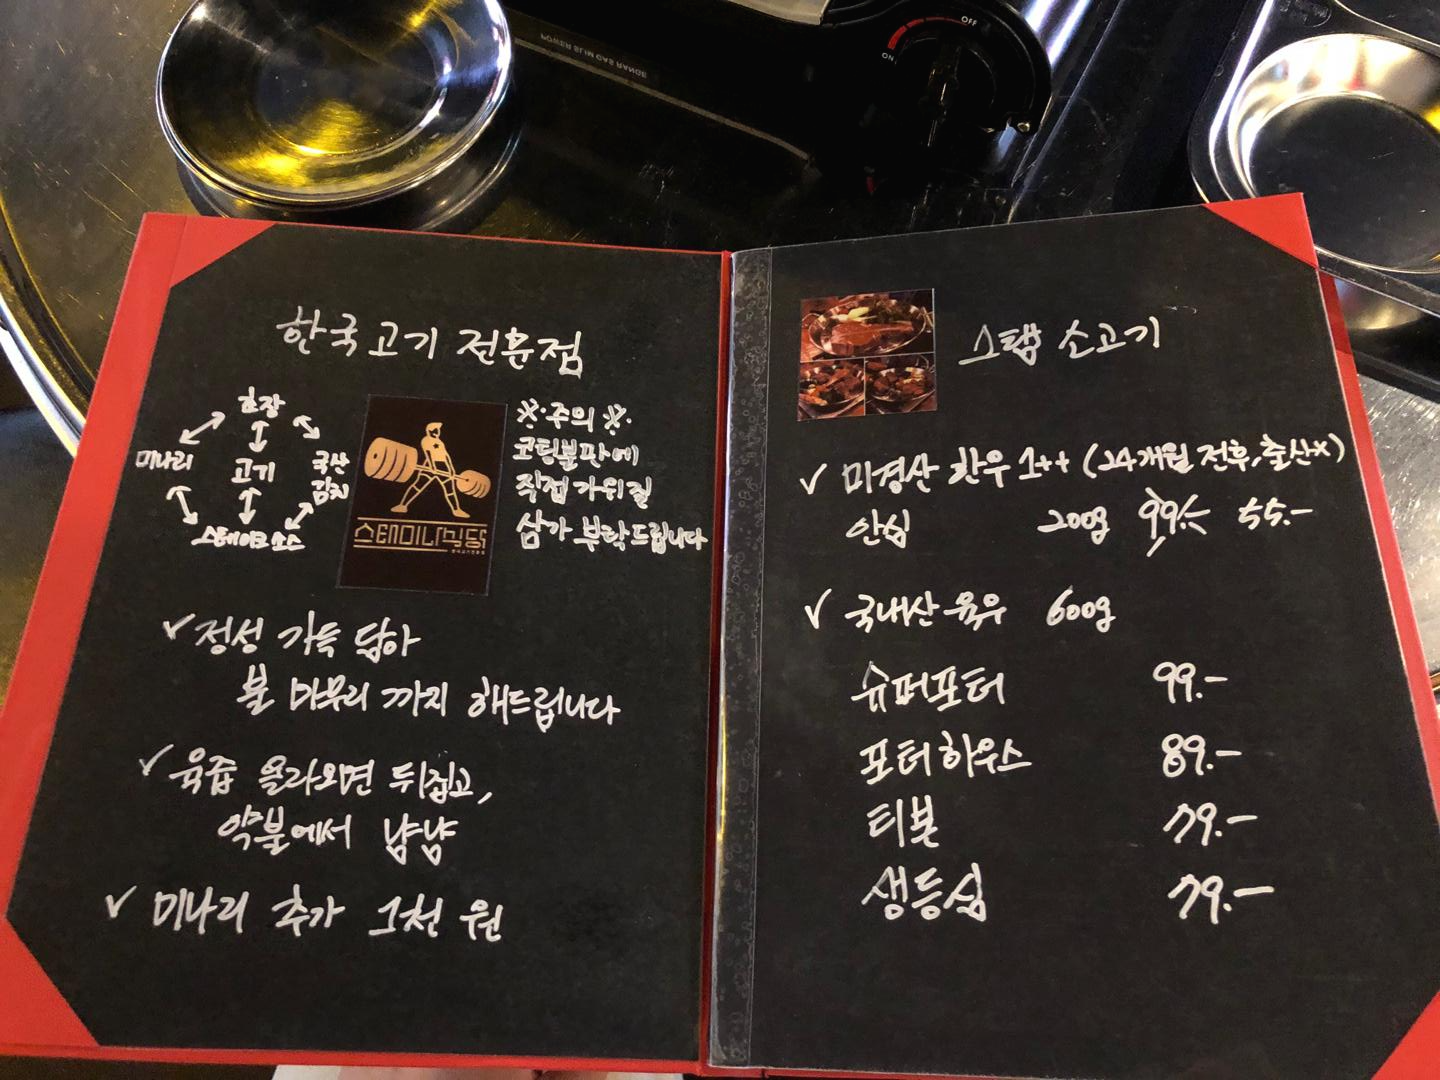 POWER SLIM GAS RANGE
OFF
ON
한국고기 전문점
효장
미나리
고기
국산
김치
스테이크 소스
스태미나빌딩
※주의※
코팅불판에
직접 가위질
삼가 부탁드립니다
✓ 정성 가득 담아
불 마무리 까지 해드립니다
✓ 육즙 올라오면 뒤집고,
약불에서 냠냠
✓ 미나리 추가 1천 원
스탭 소고기
✓ 미경산 한우 1++ (24개월 전후, 출산x)
안심 200g 99.- 55.-
✓ 국내산 육우 600g
슈퍼포터 99.-
포터하우스 89.-
티본 79.-
생등심 79.-